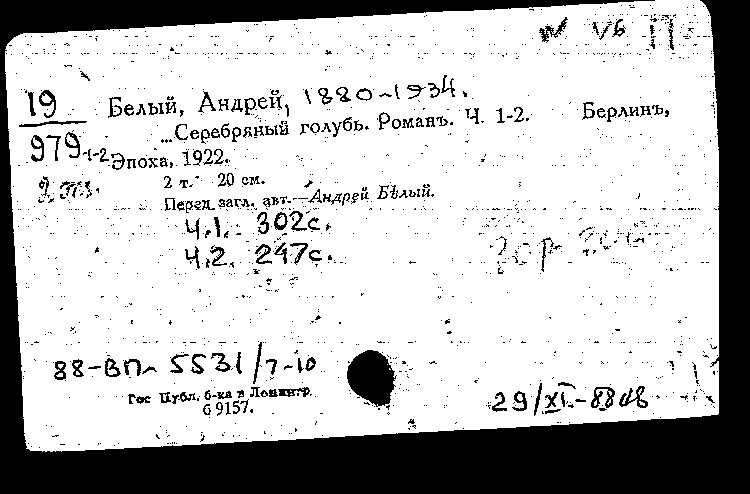 VБ П
19
979 1-2
2 экз.
Белый, Андрей, 1880-1934.
...Серебряный голубь. Романъ. Ч. 1-2. Берлинъ,
Эпоха, 1922.
2 т. 20 см.
Перед загл. авт.—Андрей Бѣлый.
Ч.1. 302с.
Ч.2. 247с.
88-ВП- 5531/7-10
Гос Публ. б-ка в Ленингр.
G 9157.
29/XI-88